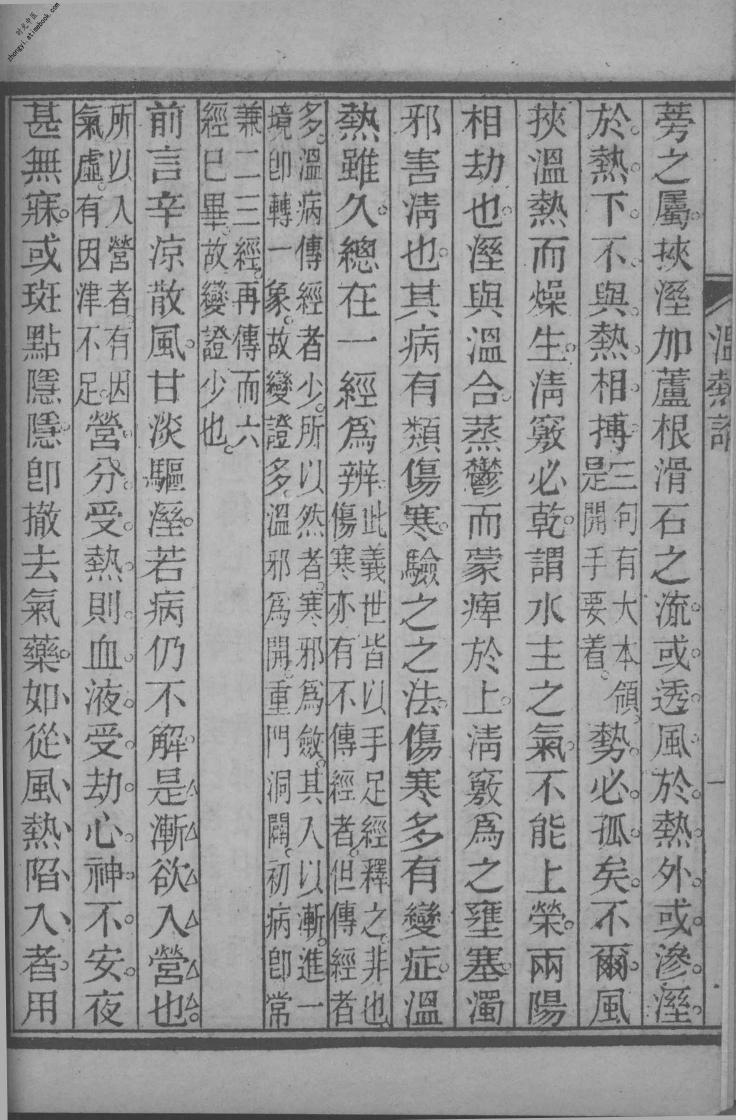 时光中医
zhongyi.atimebook.com
溫熱論
一
蒡之屬。挾溼加蘆根滑石之流。或透風於熱外。或滲溼
於熱下。不與熱相搏。三句有大本領。
是開手要着。勢必孤矣。不爾風
挾溫熱而燥生。清竅必乾。謂水主之氣。不能上榮。兩陽
相劫也。溼與溫合。蒸鬱而蒙痺於上。清竅爲之壅塞。濁
邪害清也。其病有類傷寒。驗之之法。傷寒多有變症。溫
熱雖久。總在一經爲辨。此義世皆以手足經釋之。非也。
傷寒亦有不傳經者。但傳經者
多。溫病傳經者少。所以然者。寒邪爲斂。其入以漸。進一
境卽轉一象。故變證多。溫邪爲開。重門洞闢。初病卽常
兼二三經。再傳而六
經已畢。故變證少也。
前言辛涼散風。甘淡驅溼。若病仍不解。是漸欲入營也。
所以入營者。有因
氣虛。有因津不足。營分受熱。則血液受劫。心神不安。夜
甚無寐。或斑點隱隱。卽撤去氣藥。如從風熱陷入者。用